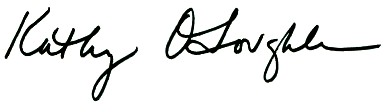 Kathy O'Loughlin